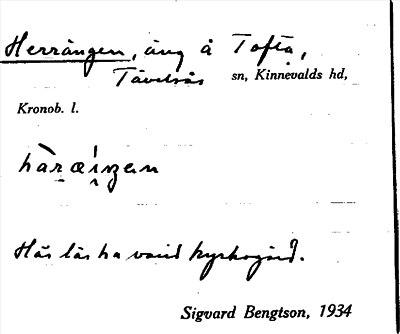 Herrängen, äng å Tofta,
Tävelsås sn, Kinnevalds hd,
Kronob. l.
hàr̤æ̀íŋen
Här lär ha varit kyrkogård.
Sigvard Bengtson, 1934